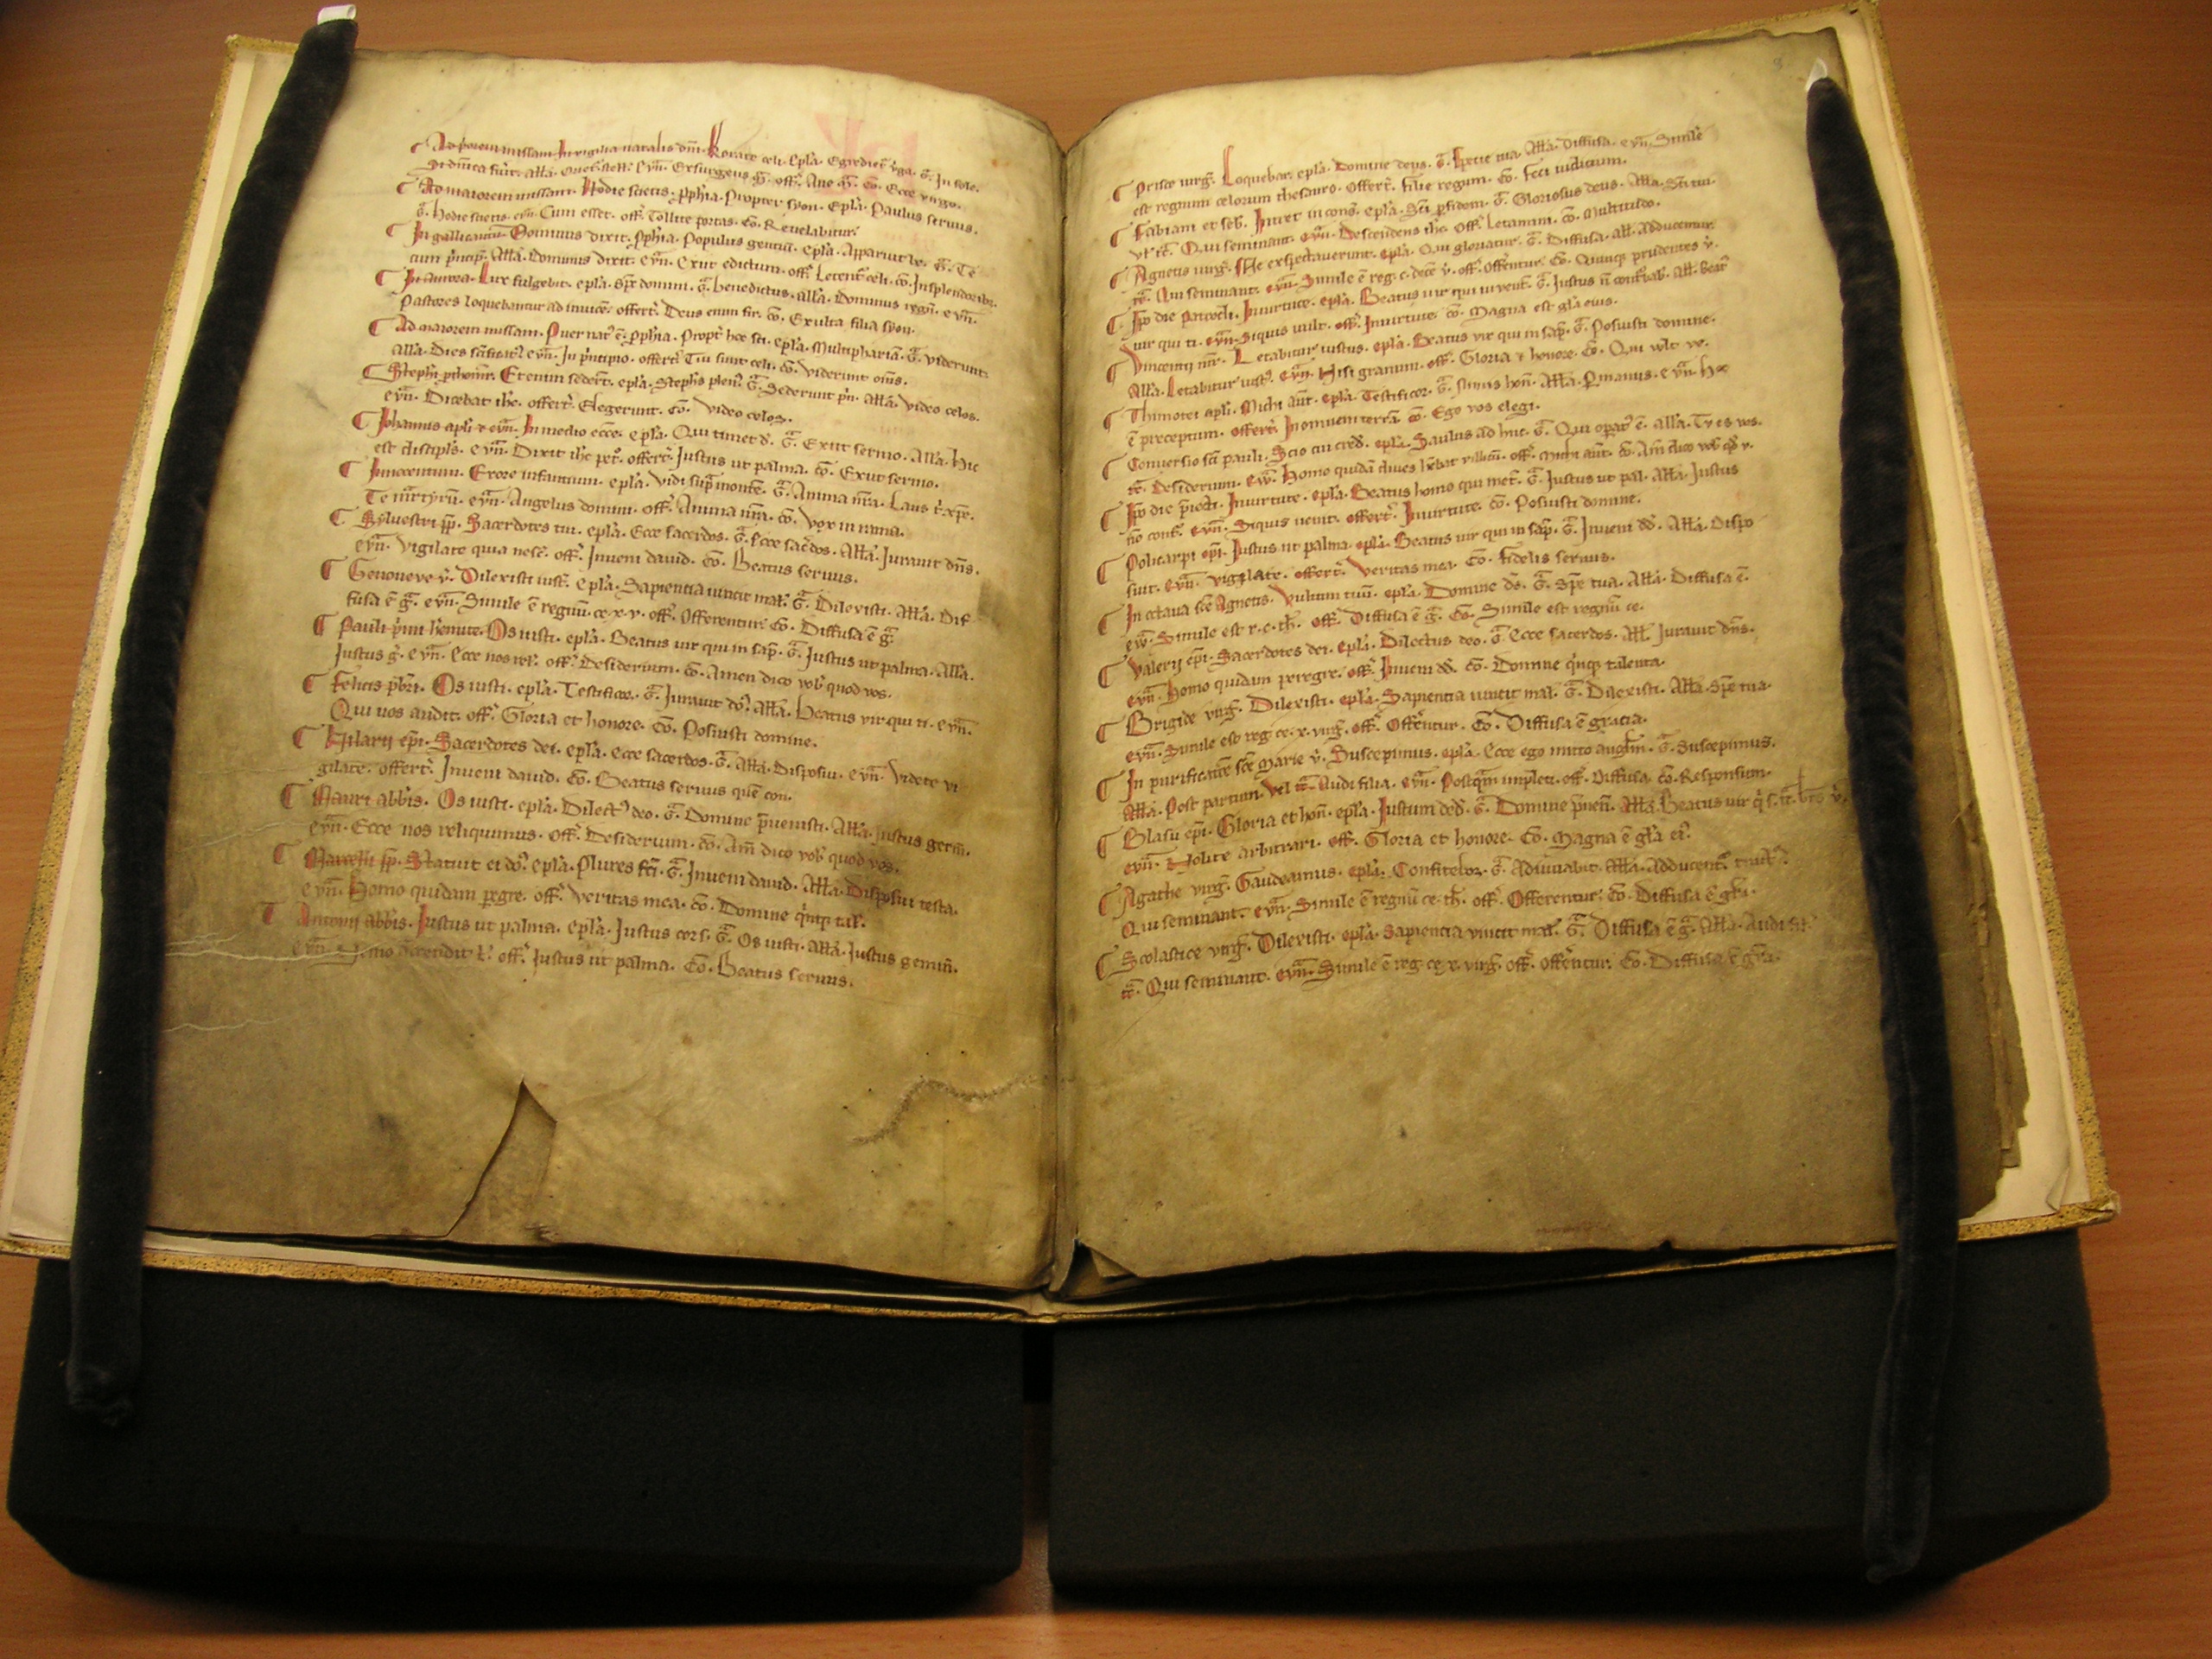 Ad priorem missam. In vigilia natalis dnī. Rorate celi. epl̄a. Egredietr̄ v̄ga. G̅. In sole.
Ave G̅. Cō. Ecce virgo.
Ad maiorem missam. Hodie scietis. pph̄ia. Propter syon. Epl̄a. Paulus servus.
G̅. hodie scietis. evn̄. Cum esset. off̄. Tollite portas. Cō. Revelabitur.
In gallicantu. Dominus dixit. pph̄ia. Populus gentiū. Epl̄a. Apparuit G̅. Te
cum prīcip̄. All̄a. Dominus dixit. evn̄. Exiit edictum. off̄. Letent̄ celi. cō. In splendoribꝫ.
In aurora. Lux fulgebit. epl̄a. G̅. benedictus. all̄a. Dominus regn̄. evn̄.
Pastores loquebantur ad invicē. offert̄. Deus enim fir. cō. Exulta filia syon.
Ad maiorem missam. Puer nat' ē. pph̄ia. Propt̄ hoc sci. epl̄a. Multiphariā. G̅. viderunt.
All̄a. Dies scīficat'. evn̄. In prīcipio. offert̄. Tui sunt celi. cō. viderunt oms̄.
Steph̄i Etenim seder̄t. epl̄a. Steph̄s plen'. G̅. Sederunt prī. all̄a. video celos.
evn̄. Dicebat ih̄c. offert̄. Elegerunt. Cō. video celos.
Johannis apl̄i ⁊ evn̄. In medio ecc̄e. epl̄a. Qui timet d̄. G̅. Exiit sermo. All̄a. hic
est discipl̄s. evn̄. Dixit ih̄c pet̄. offert̄. Justus ut palma. cō. Exiit sermo.
Innocentum. Ex ore infantium. epl̄a. Vidi sup̄ montē. G̅. Anima nr̄a. Laus t̄ xp̄e.
Te mārtyrū. evn̄. Angelus domini. off̄. Anima nr̄a. cō. vox in rama.
Sylvestri pp̄. Sacerdotes tui. epl̄a. Ecce sacerdos. G̅. Ecce sac̄dos. All̄a. Juravit dn̄s.
evn̄. vigilate quia nesc̄. off̄. Inveni david. cō. Beatus servus.
Genoveve v̄. Dilexisti iust̄. epl̄a. Sapientia vincit mal̄. G̅. Dilexisti. All̄a. Dif
fusa ē G̅. evn̄. Simile ē regnū ce. x. v. off̄. Offerentur. Cō. Diffusa ē G̅.
Pauli Os iusti. epl̄a. Beatus vir qui in sap̄. G̅. Justus ut palma. All̄a.
Justus g̅. evn̄. Ecce nos rel̄. off̄. Desiderium. cō. Amen dico vob̄ quod vos.
Felicis pb̄ri. Os iusti. epl̄a. Testificor. G̅. Juravit dn̄s. All̄a. Beatus vir qui ti. evn̄.
Qui vos audit. off̄. Gloria et honore. cō. Posuisti domine.
Hilarij epī. Sacerdotes dei. epl̄a. Ecce sacerdos. G̅. All̄a. Disposui. evn̄. Videte vi
gilate. offert̄. Inveni david. cō. Beatus servus quē con.
Mauri abbis. Os iusti. epl̄a. Dilect' deo. G̅. Domine p̄venisti. All̄a. Justus germ̄.
evn̄. Ecce nos reliquimus. off̄. Desiderium. cō. Am̄ dico vob̄ quod vos.
Marcelli pp̄. Statuit ei dn̄s. epl̄a. Plures fc̄i. G̅. Inveni david. All̄a. Disposui testa.
evn̄. Homo quidam pegre. off̄. Veritas mea. cō. Domine q̄nqꝫ tal̄.
Antonij abbis. Justus ut palma. epl̄a. Justus cor s. G̅. Os iusti. All̄a. Justus germin̄.
evn̄. off̄. Justus ut palma. cō. Beatus servus.
Prisce virḡ. Loquebar. epl̄a. Domine deus. G̅. Specie tua. All̄a. Diffusa. evn̄. Simile
est regnum celorum thesauro. offert̄. Filie regum. cō. Feci iudicium.
Fabiani et seb̄. Intret in cons̄. epl̄a. Sc̄i p fidem. G̅. Gloriosus deus. All̄a. Sc̄i tui.
Qui seminant. evn̄. Descendens ih̄c. off̄. Letamini. cō. Multitudo.
Agnetis virḡ. Me exspectaverunt. epl̄a. Qui gloriatur. G̅. Diffusa. all̄. Adducentur.
Qui seminant. evn̄. Simile ē reg. c. dece v̄. off̄. Offerentur. cō. Quinqꝫ prudentes v̄.
Ipo die Patrocli. In virtute. epl̄a. Beatus vir qui invent̄. G̅. Justus n̄ conturbab̄. All̄. Beat'
vir qui ti. evn̄. Siquis vult. off̄. In virtute. cō. Magna est gl̄a eius.
Vincentij mr̄. Letabitur iustus. epl̄a. Beatus vir qui in sap̄. G̅. Posuisti domine.
All̄a. Letabitur iust'. evn̄. Nisi granum. off̄. Gloria ⁊ honore. cō. Qui vult ve.
Thimotei apl̄i. Michi aut̄. epl̄a. Testificor. G̅. Nimis hon̄. All̄a. evn̄. Hoc
ē preceptum. offert̄. In omnem terrā. cō. Ego vos elegi.
Conversio sc̄i pauli. Scio cui cred̄. epl̄a. Saulus ad huc. G̅. Qui opat' ē. all̄a. Tu es vas.
tc̄. Desiderium. ev̄. Homo quidā dives h̄ebat villicū. off̄. Michi aut̄. cō. Am̄ dico vob̄
Ipo die p̄iecti. In virtute. epl̄a. Beatus homo qui inveī. G̅. Justus ut pal. All̄a. Justus
n̄o cont̄. evn̄. Siquis venit. offert̄. In virtute. cō. Posuisti domine.
Policarpi epī. Justus ut palma. epl̄a. Beatus vir qui in sap̄. G̅. Inveni dd̄. All̄a. Dispo
sui. evn̄. vigilate. offert̄. Veritas mea. cō. Fidelis servus.
In octava sc̄e Agnetis. Vultum tuū. epl̄a. Domine d̄s. G̅. Sp̄e tua. All̄a. Diffusa ē.
ev̄. Simile est r. c. th̄. off̄. Diffusa ē g̅. cō. Simile est regnū ce.
Valerij epī. Sacerdotes dei. epl̄a. Dilectus deo. G̅. Ecce sacerdos. All̄. Juravit dn̄s.
evn̄. Homo quidam peregre. off̄. Inveni dd̄. cō. Domine q̄nqꝫ talenta.
Brigide virḡ. Dilexisti. epl̄a. Sapientia vincit mal̄. G̅. Dilexisti. All̄a. Sp̄e tua.
evn̄. Simile est reg. ce. x. virḡ. off̄. Offērntur. cō. Diffusa ē gracia.
In purificatiōe sc̄e Marie v̄. Suscepimus. epl̄a. Ecce ego mitto angl̄m. G̅. Suscepimus.
All̄a. Post partum. Vel tc̄. Audi filia. evn̄. Postq̄m impleti. off̄. Diffusa. cō. Responsum.
Blasii epī. Gloria et hon̄. epl̄a. Justum ded̄. G̅. Domine p̄ven̄. All̄a. Beatus vir
evn̄. Nolite arbitrari. off̄. Gloria et honore. cō. Magna ē gl̄a ei'.
Agathe virḡ. Gaudeamus. epl̄a. Confitebor. G̅. Adiuvabit. All̄a. Adducent̄.
Qui seminant. evn̄. Simile ē regnū ce. th̄. off̄. Offerentur. cō. Diffusa ē
Scolastice virḡ. Dilexisti. epl̄a. Sapientia vincit mal̄. G̅. Diffusa ē g̅. All̄a. Audi
tc̄. Qui seminant. evn̄. Simile ē reg. ce. x. virḡ. off̄. Offērntur. cō. Diffusa ē